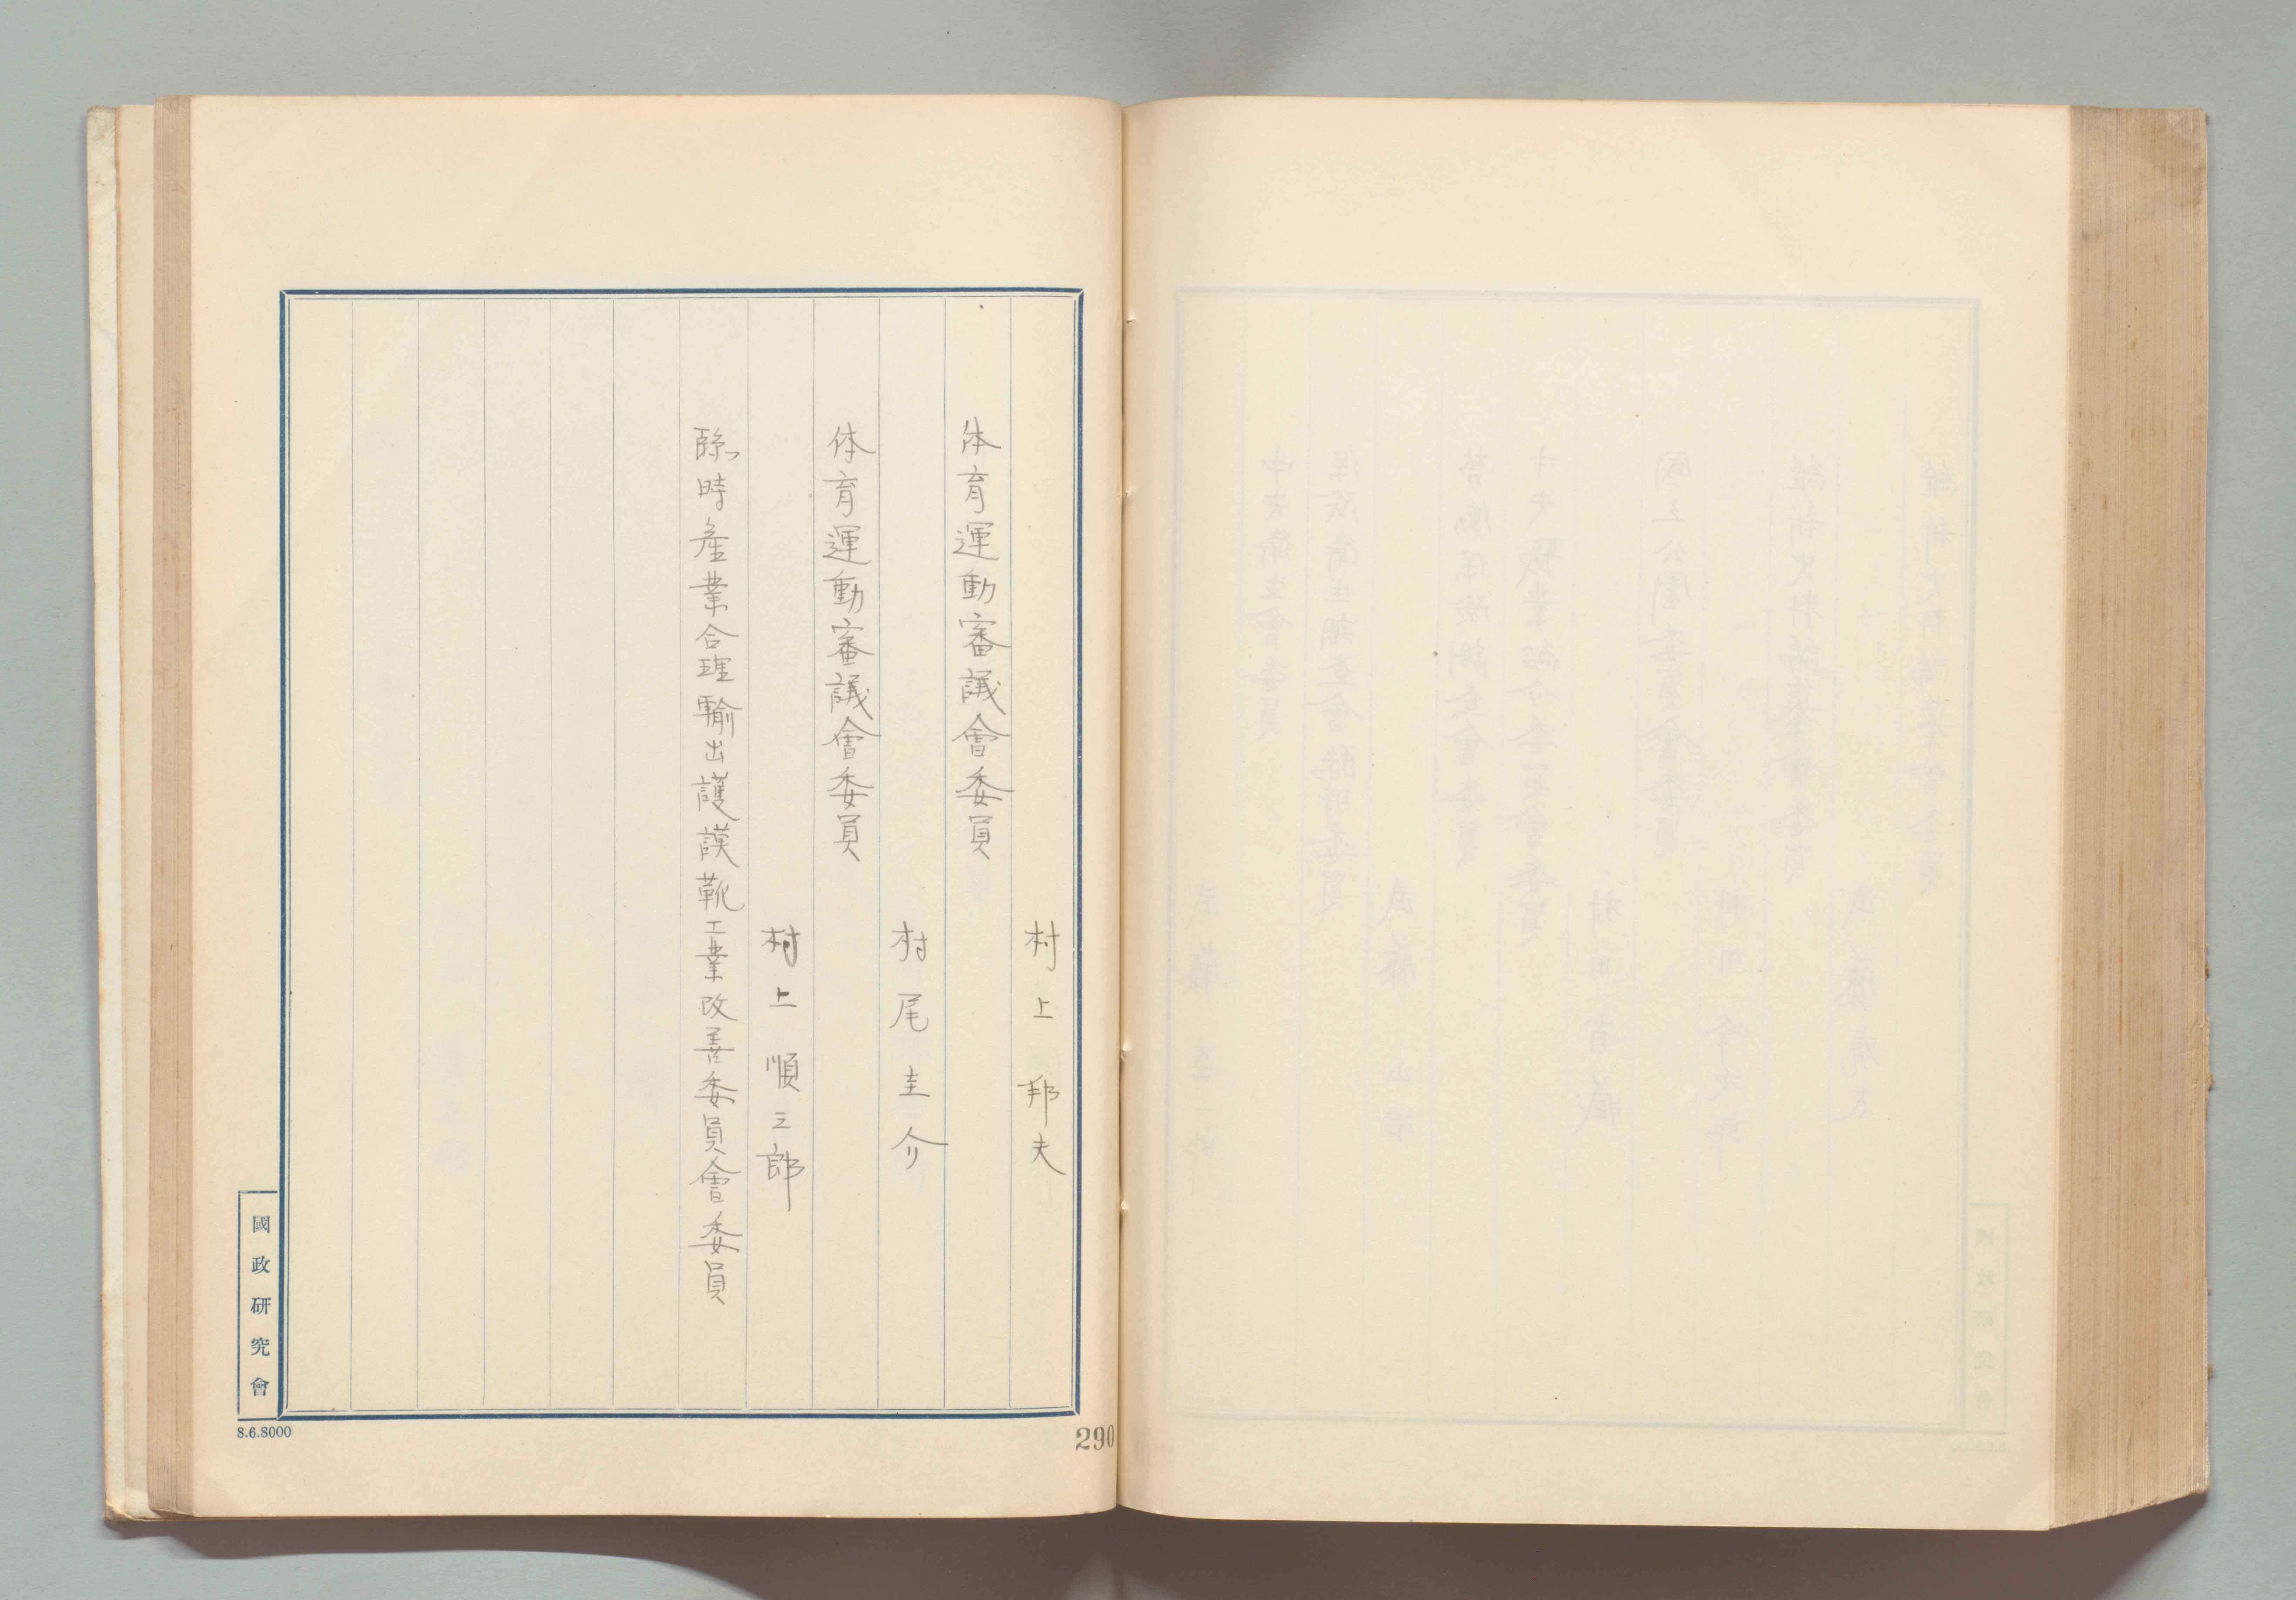 村上邦夫
体育運動審議會委員
村尾圭介
体育運動審議會委員
村上順三郎
臨時產業合理輸出護謨靴工業改善委員會委員
國政研究會
8.6.8000
290